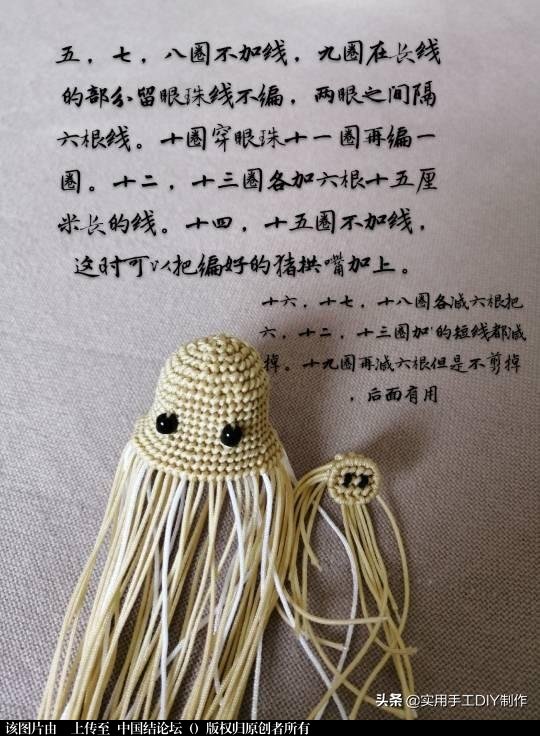 五，七，八圈不加线，九圈在长线
的部分留眼珠线不编，两眼之间隔
六根线。十圈穿眼珠十一圈再编一
圈。十二，十三圈各加六根十五厘
米长的线。十四，十五圈不加线，
这时可以把编好的猪拱嘴加上。
十六，十七，十八圈各减六根把
六，十二，十三圈加'的短线都减
掉。十九圈再减六根但是不剪掉
，后面有用
头条 @实用手工DIY制作
该图片由 上传至 中国结论坛 () 版权归原创者所有